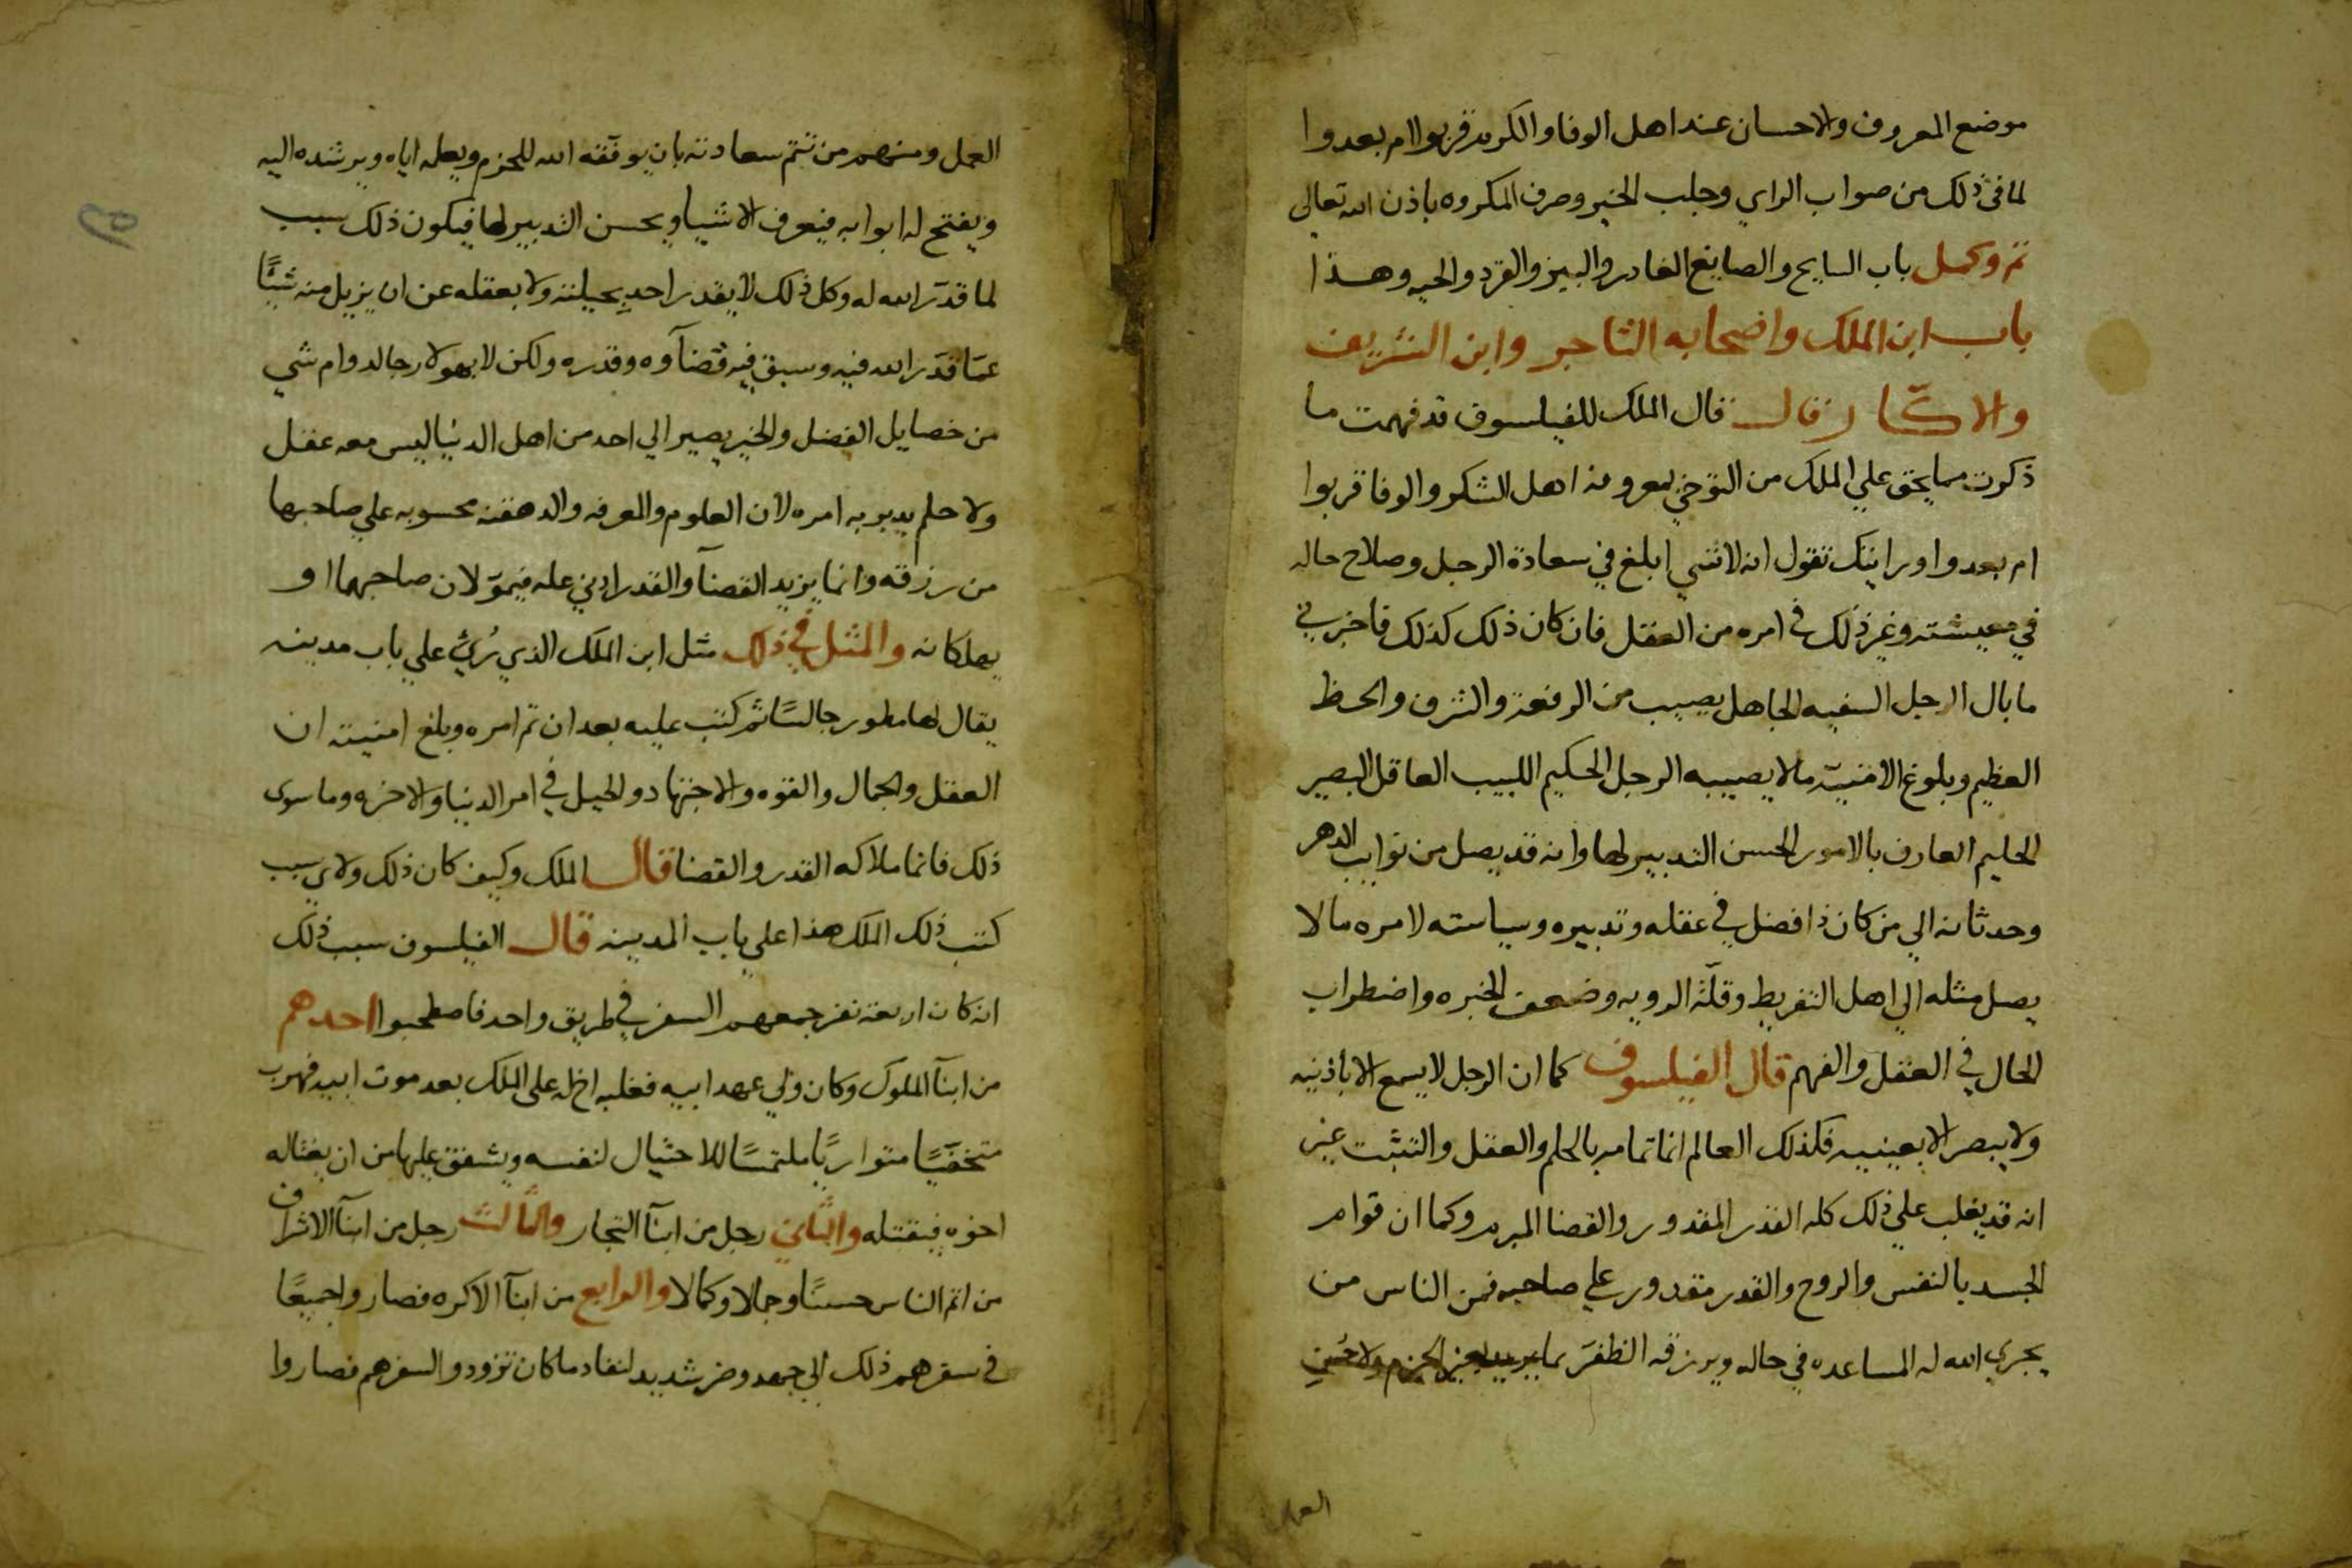 موضع المعروف والاحسان عند اهل الوفا والكرم قربوا ام بعدوا
لما في ذلك من صواب الراي وجلب الخير وصرف المكروه باذن الله تعالى
تم وكمل باب السايح والصايغ الغادر والببر والقرد والحيه وهذا
باب ابن الملك واصحابه التاجر وابن الشريف
والاكار قال قال الملك للفيلسوف قد فهمت ما
ذكرت مما يحق علي الملك من التوخي بمعروفه اهل الشكر والوفا قربوا
ام بعدوا ورايتك تقول انه لا شي ابلغ في سعادة الرجل وصلاح حاله
في معيشته وغير ذلك في امره من العقل فان كان ذلك كذلك فاخبرني
ما بال الرجل السفيه الجاهل يصيب من الرفعة والشرف والحظ
العظيم وبلوغ الامنية ما لا يصيبه الرجل الحكيم اللبيب العاقل البصير
الحليم العارف بالامور الحسن التدبير لها وانه قد يصل من نوايب الدهر
وحدثانه الي من كان ذا فضل في عقله وتدبيره وسياسته لامره ما لا
يصل مثله الي اهل التفريط وقلّة الرويه وضعف الخبره واضطراب
الحال في العقل والفهم قال الفيلسوف كما ان الرجل لا يسمع الا باذنيه
ولا يبصر الا بعينيه فكذلك العالم انما تمامه بالحلم والعقل والتثبت غير
انه قد يغلب علي ذلك كله القدر المقدور والقضا المبرم وكما ان قوام
الجسد بالنفس والروح والقدر مقدور علي صاحبه فمن الناس من
يجري الله له المساعده في حاله ويرزقه الظفر بما يريد بغير الحزم ولا حُسنِ
العمل
العمل ومنهم من تتم سعادته بان يوفقه الله للحزم ويعلمه اياه ويرشده اليه
ويفتح له ابوابه فيعرف الاشيا ويحسن التدبير لها فيكون ذلك سبب
لما قدّر الله له وكل ذلك لا يقدر احدٍ بحيلته ولا بعقله عن ان يزيل منه شيئًا
عمّا قدّر الله فيه وسبق فيه قضآوه وقدره ولكن لا بهولا رجا لدوام شي
من خصايل الفضل والخير يصير الي احد من اهل الدنيا ليس معه عقل
ولا حلم يدبر به امره لان العلوم والمعرفه والدهقنه محسوبه علي صاحبها
من رزقه وانما يزيد القضآ والقدر ادني عله فيموّلان صاحبهما او
يهلكانه والمثل في ذلك مثل ابن الملك الذي رُئي علي باب مدينه
يقال لها مطور جالسًا ثم كتب عليه بعد ان تم امره وبلغ امنيته ان
العقل والجمال والقوه والاجتهاد والحيل في امر الدنيا والاخره وما سوى
ذلك فانما ملاكه القدر والقضا قال الملك وكيف كان ذلك ولاي سبب
كتب ذلك الملك هذا علي باب المدينه قال الفيلسوف سبب ذلك
انه كان اربعة نفر جمعهم السفر في طريق واحد فاصطحبوا احدهم
من ابنآ الملوك وكان ولي عهد ابيه فغلبه اخ له على الملك بعد موت ابيه فهرب
متخفيًا متواريًا ملتمسًا للاحتيال لنفسه ويشفق عليها من ان يغتاله
اخوه فيقتله والثاني رجل من ابنآ التجار والثالث رجل من ابنآ الاشراف
من اتم الناس حسنًا وجمالا وكمالا والرابع من ابنآ الاكره فصاروا جميعًا
في سفرهم ذلك الي جهد وضر شديد لنفاد ما كان تزودوا لسفرهم فصاروا